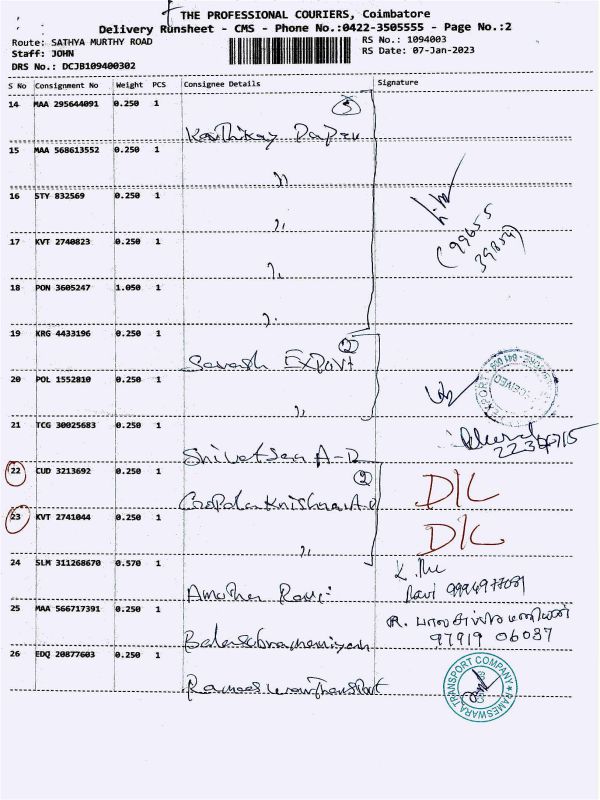 THE PROFESSIONAL COURIERS, Coimbatore
Delivery Runsheet - CMS - Phone No.:0422-3505555 - Page No.:2
Route: SATHYA MURTHY ROAD
RS No.: 1094003
Staff: JOHN
RS Date: 07-Jan-2023
DRS No.: DCJB109400302
S No Consignment No Weight PCS Consignee Details Signature
14 MAA 295644091 0.250 1
5
Karthikay Papru
15 MAA 568613552 0.250 1
,,
16 STY 832569 0.250 1
,,
17 KVT 2740823 0.250 1
,,
18 PON 3605247 1.050 1
,,
(99655
39854)
19 KRG 4433196 0.250 1
2
Savash Export
20 POL 1552810 0.250 1
,,
EXPORT RECEIVED
21 TCG 30025683 0.250 1
Shivatsan A-D
22 CUD 3213692 0.250 1
2
Gopalakrishnan A-D
D/L
23 KVT 2741044 0.250 1
,,
D/L
24 SLM 311268670 0.570 1
Amutha Ravi
Ravi
25 MAA 566717391 0.250 1
Balasubramaniyan
R. பாலசுப்ரமணியன்
97919 06037
26 EDQ 20877603 0.250 1
Rameeswara Transport
RAMESWARA TRANSPORT COMPANY